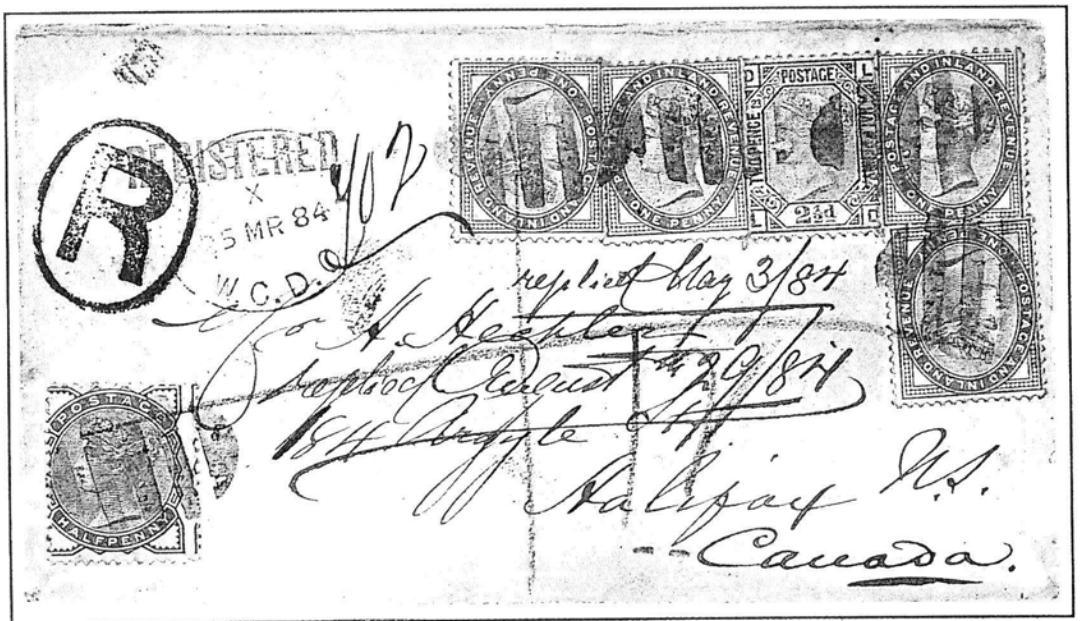 REGISTERED
X
5 MR 84
W.C.D.
R
402
POSTAGE AND INLAND REVENUE ONE PENNY
POSTAGE AND INLAND REVENUE ONE PENNY
POSTAGE
TWO PENCE HALFPENNY
2½d
23
L
D
POSTAGE AND INLAND REVENUE ONE PENNY
POSTAGE AND INLAND REVENUE ONE PENNY
POSTAGE
HALFPENNY
replied May 3/84
H.
replied August 29/84
184 Argyle St
Halifax N.S.
Canada.